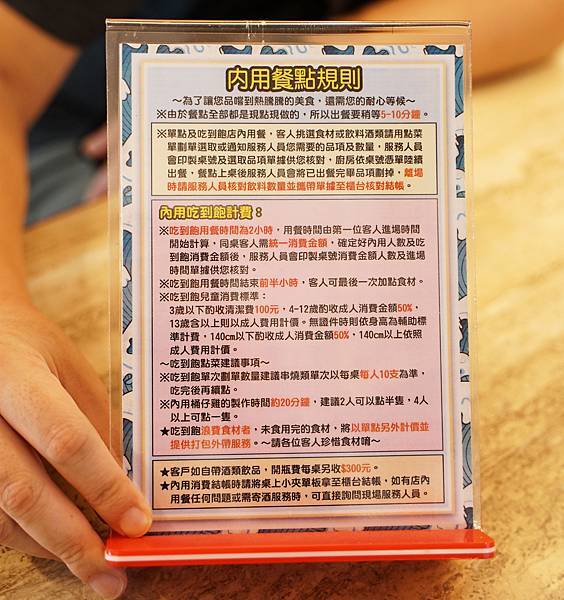 內用餐點規則
～為了讓您品嚐到熱騰騰的美食，還需您的耐心等候～
※由於餐點全部都是現點現做的，所以出餐要稍等5-10分鐘。
※單點及吃到飽店內用餐，客人挑選食材或飲料酒類請用點菜
單劃單選取或通知服務人員您需要的品項及數量，服務人員
會印製桌號及選取品項單據供您核對，廚房依桌號憑單陸續
出餐，餐點上桌後服務人員會將已出餐完畢品項劃掉，離場
時請服務人員核對飲料數量並攜帶單據至櫃台核對結帳。
內用吃到飽計費：
※吃到飽用餐時間為2小時，用餐時間由第一位客人進場時間
開始計算，同桌客人需統一消費金額，確定好內用人數及吃
到飽消費金額後，服務人員會印製桌號消費金額人數及進場
時間單據供您核對。
※吃到飽用餐時間結束前半小時，客人可最後一次加點食材。
※吃到飽兒童消費標準：
3歲以下酌收清潔費100元，4-12歲酌收成人消費金額50%，
13歲含以上則以成人費用計價。無證件時則依身高為輔助標
準計費，140cm以下酌收成人消費金額50%，140cm以上依照
成人費用計價。
～吃到飽點菜建議事項～
※吃到飽單次劃單數量建議串燒類單次以每桌每人10支為準，
吃完後再續點。
※內用桶仔雞的製作時間約20分鐘，建議2人可以點半隻，4人
以上可點一隻。
★吃到飽浪費食材者，未食用完的食材，將以單點另外計價並
提供打包外帶服務。～請各位客人珍惜食材唷～
★客戶如自帶酒類飲品，開瓶費每桌另收$300元。
★內用消費結帳時請將桌上小夾單板拿至櫃台結帳，如有店內
用餐任何問題或需寄酒服務時，可直接詢問現場服務人員。